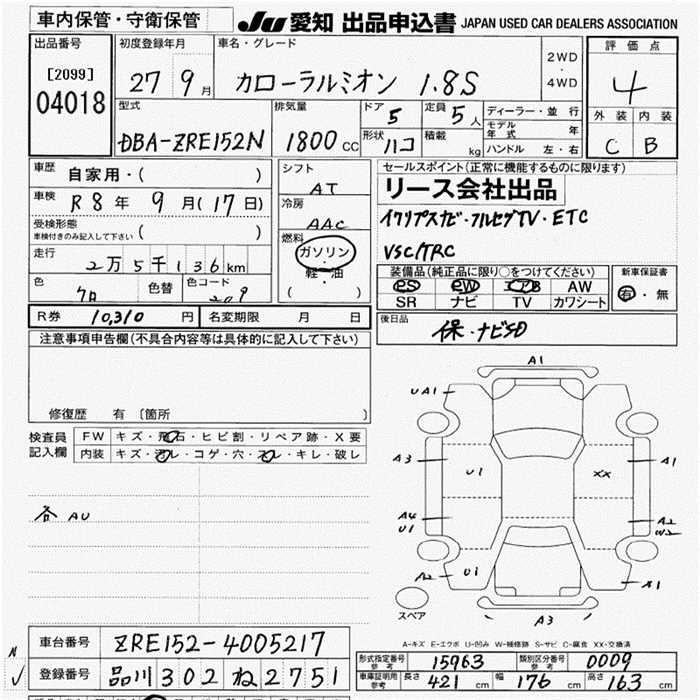 車内保管・守衛保管
JU 愛知 出品申込書 JAPAN USED CAR DEALERS ASSOCIATION
出品番号 初度登録年月 車名・グレード 2WD ・ 4WD 評価点
[2099]
04018 27 9月 カローラルミオン 1.8S 4
型式 排気量 ドア 5 定員 5人 ディーラー・並行 外装 内装
モデル年式 年
DBA-ZRE152N 1800cc 形状 ハコ 積載 kg ハンドル 左・右 C B
車歴 自家用・( ) シフト AT セールスポイント(正常に機能するものに限ります)
車検 R8年 9月(17日) 冷房 AAC リース会社出品
受検形態 車検付きのみ記入して下さい ( ) イクリプスナビ・フルセグTV・ETC
走行 2万5千136km 燃料 ガソリン・軽・油 ( ) VSC/TRC
色 クロ 色替 色コード 209 装備品(純正品に限り〇をつけてください) 新車保証書
PS PW エアB AW 有・無
SR ナビ TV カワシート
R券 10,310円 名変期限 月 日 後日品 保・ナビSD
注意事項申告欄(不具合内容等は具体的に記入して下さい)
修復歴 有 〔箇所
検査員記入欄 FW キズ・飛石・ヒビ割・リペア跡・X要
内装 キズ・汚レ・コゲ・穴・スレ・キレ・破レ
各 AU
A1
UA1
A3 U1 XX A1
A4 U1 A2 W2
A2 U1 A1
スペア A3
A-キズ E-エクボ U-凹み W-補修跡 S-サビ C-腐食 XX-交換済
車台番号 ZRE152-4005217
登録番号 品川 302 ね 2751
形式指定番号 参考 15963 類別区分番号 参考 0009
車庫証明用 参考 長さ 421cm 幅 176cm 高さ 163cm